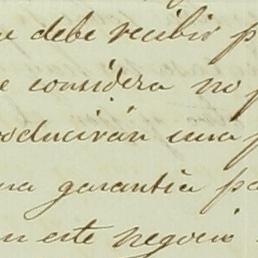 e debe recibir p
e considera no p
oducirán una p
na garantía pa
n este negocio